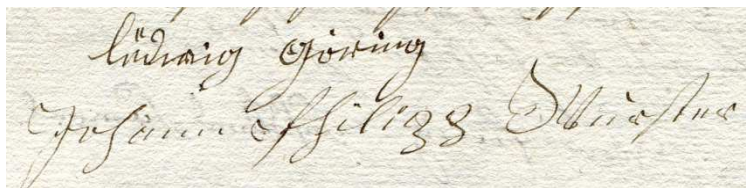 lüdwig Göring
Johann Philipp Wurster